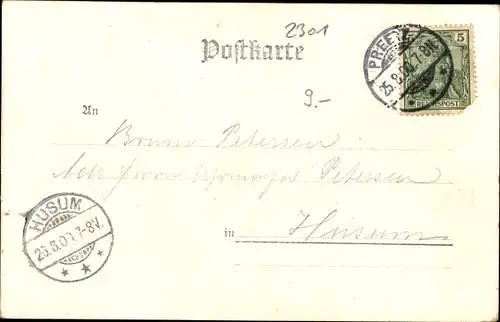 2301
Postkarte
PREETZ
25.8.00.7-8N.
5
REICHSPOST
9.-
An
Bruno Petersen
Adr. Herrn Petersen
HUSUM
26.8.00.7-8V.
in Husum